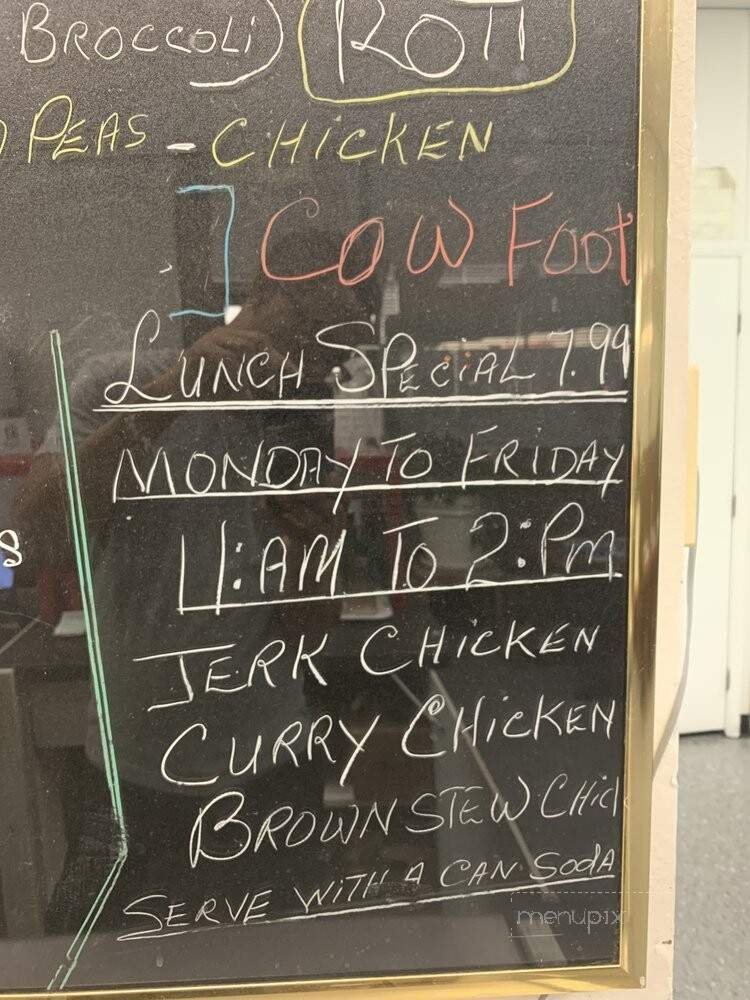 BROCCOLI) ROTI
PEAS - CHICKEN
] COW FOOT
LUNCH SPECIAL 7.99
MONDAY TO FRIDAY
11:AM TO 2:PM
JERK CHICKEN
CURRY CHICKEN
BROWN STEW CHIC
SERVE WITH A CAN SODA
menupix